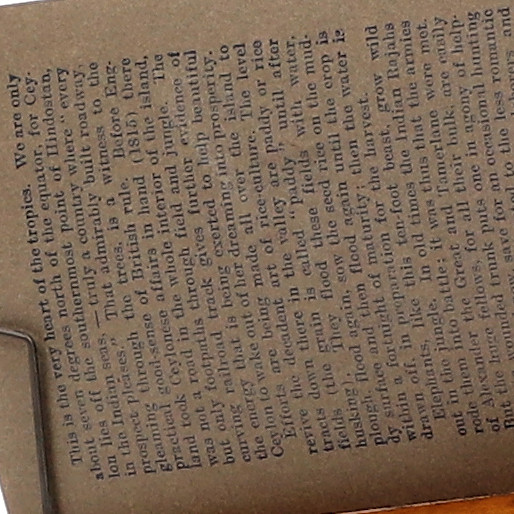 This is the very heart of the tropics. We are only
about seven degrees north of the equator, for Cey-
lon lies off the southernmost point of Hindostan,
in the Indian seas, — truly a country where "every
prospect pleases." That admirably built roadway,
gleaming through the trees, is a witness to the
practical good-sense of British rule. Before Eng-
land took Ceylonese affairs in hand (1815) there
was not a road in the whole interior of the island,
but only footpaths through field and jungle. The
curving railroad track gives further evidence of
the energy that is being exerted to help beautiful
Ceylon to wake out of her dreaming into prosperity.
Efforts are being made all over the island to
revive the decadent art of rice-culture. The level
tracts down there in the valley are paddy or rice
fields (the grain is called "paddy" until after
husking). They flood these fields with water,
plough, flood again, sow the seed rice on the mud-
dy surface and then flood again until the crop is
within a fortnight of maturity; then the water is
drawn off in preparation for the harvest.
Elephants, like this ten-foot beast, grow wild
out in the jungle; in old times the Indian Rajahs
rode them into battle; it was thus that the armies
of Alexander the Great and Tamerlane were met.
But the fellows, for all their bulk, are easily
wounded trunk puts one in agony of help-
save for an occasional hunting
to the less romantic
and